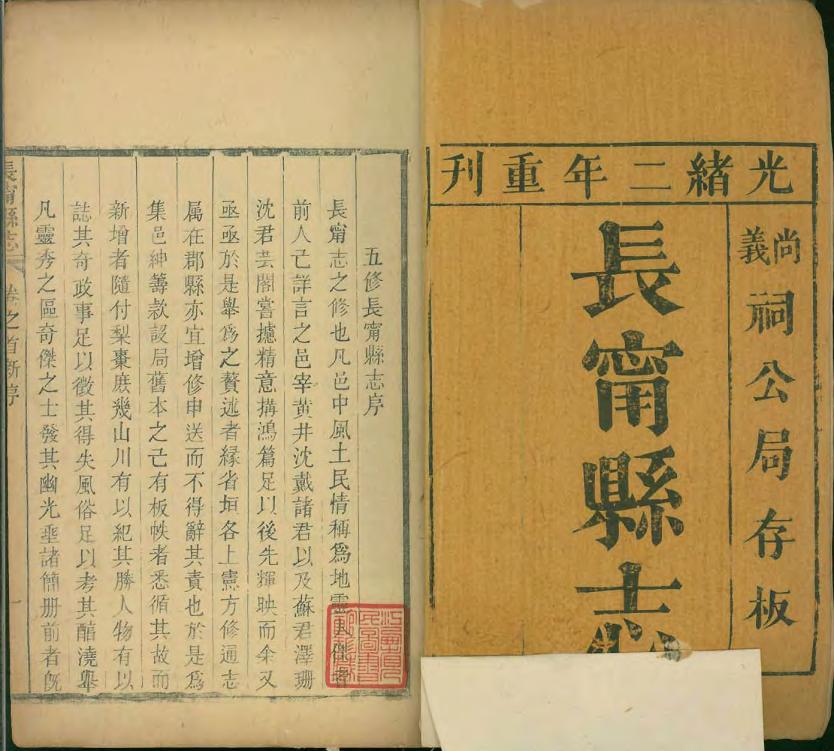 光緒二年重刊
尚義祠公局存板
長甯縣志
五修長甯縣志序
長甯志之修也凡邑中風土民情稱爲地靈人傑者
前人已詳言之邑宰黄井沈戴諸君以及蘇君澤珊
沈君芸閣嘗攄精意搆鴻篇足以後先輝映而余又
亟亟於是舉爲之贅述者縁省垣各上憲方修通志
属在郡縣亦宜增修申送而不得辭其責也於是爲
集邑紳籌款設局舊本之已有板帙者悉循其故而
新增者隨付梨棗庶幾山川有以紀其勝人物有以
誌其奇政事足以徵其得失風俗足以考其醕澆舉
凡靈秀之區奇傑之士發其幽光垂諸簡册前者旣
長甯縣志 卷之首新序 一